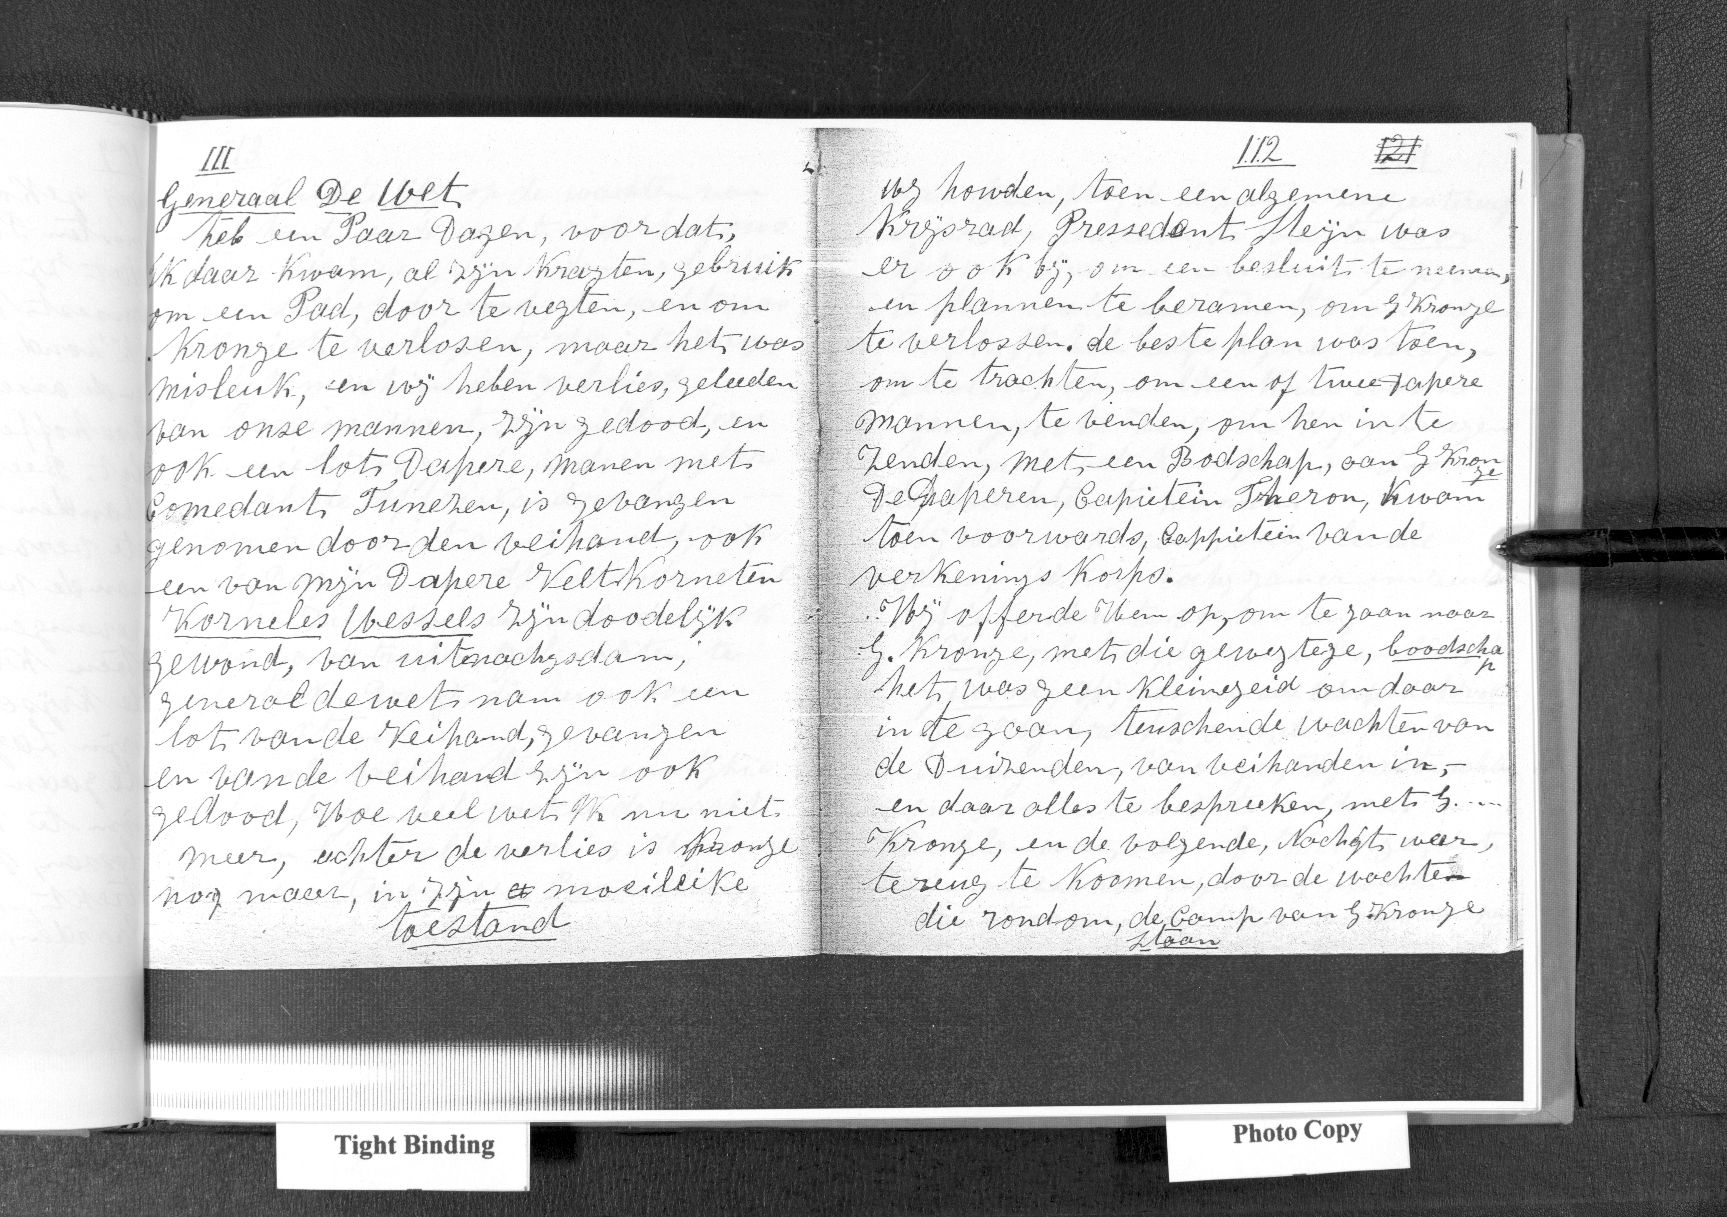 111
Generaal De Wet
heb een Paar Dagen, voor dat,
ik daar kwam, al zÿn kragten, gebruik
om een Pad, door te vegten, en om
Kronge te verlosen, maar het was
misleuk, en wÿ heben verlies, geleeden
van onse mannen, zÿn gedood, en
ook een lot Dapere, manen met
Comedant Tunezen, is gevangen
genomen door den veihand, ook
een van mÿn Dapere Velt Korneten
Korneles Wessels zÿn doodelÿk
gewond, van uitenachgsdam,
generaal de wet nam ook een
lot van de Veihand, gevangen
en van de veihand zÿn ook
gedood, Hoe veel wet ik nu niet
meer, echter de verlies is Kronge
nog maar, in zÿn moeileike
toestand
112 121
wÿ howden, toen een algemene
Krÿsrad, Pressedent Steÿn was
er ook bÿ, om een besluit te neeman,
en plannen te beramen, om G Kronge
te verlossen. de beste plan was toen,
om te trachten, om een of twee dapere
mannen, te venden, om hen in te
Zenden, met een Bodschap, aan G Kronge
De Daperen, Capietein Theron, kwam
toen voorwards, Cappietein van de
verkenings Korps.
Wÿ offerde Hem op, om te gaan naar
G. Kronge, met die gewegtege, boodschap
het was geen kleinegeid om daar
in te gaan, tuschende wachten van
de Duizenden, van veihanden in,-
en daar alles te bespreeken, met G. ....
Kronge, en de volgende, Nachgt weer,
tereug te Koomen, door de wachten
die rondom, de Camp van G. Kronge
staan
Tight Binding
Photo Copy